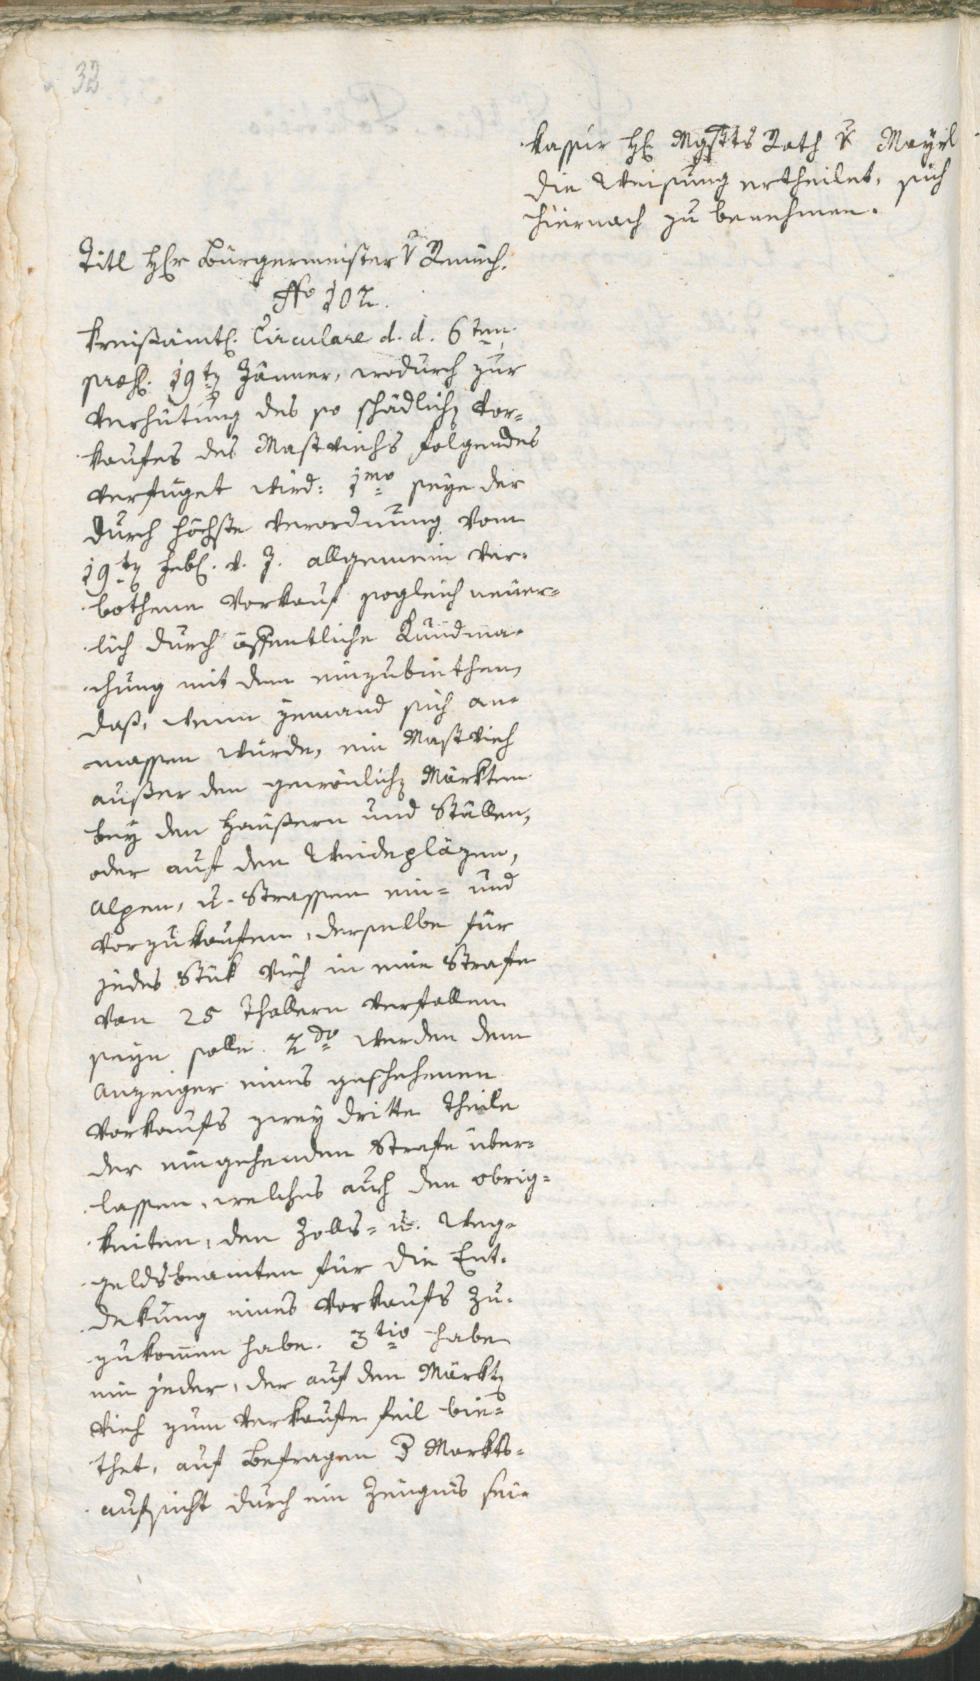 32
kassir H: Mgstts Rath v Mayrl
die Weisung ertheilet, sich
hiernach zu benehmen.
Titl H:r Bürgermeister v
No 102.
Kreisämtl: Circulare d. d. 6ten
præs: 19tn Jänner, wodurch zur
Verhütung des so schädlichn Vor-
kaufes des Mastviehs folgendes
verfüget wird: 1mo seye der
durch höchste Verordnung vom
19tn v. J. allgemein ver-
bothene Vorkauf sogleich neuer-
lich durch öffentliche Kundma-
chung mit dem einzubiethen,
daß, wenn jemand sich an-
massen würde, ein Mastvieh
außer den gewönlichn Märkten
bey den Häußern und Ställen,
oder auf den Weidepläzen,
Alpen, u. Strassen ein- und
vorzukaufen, derselbe für
jedes Stük Vieh in eine Strafe
von 25 Thallern verfallen
seyn solle. 2do werden dem
Anzeiger eines geschehenen
Vorkaufs zwey dritte Theile
der eingehenden Strafe über-
lassen, welches auch den Obrig-
keiten, den Zolls- u. Weg-
geldsbeamten für die Ent-
dekung eines Vorkaufs zu-
zukommen habe. 3tio habe
ein jeder, der auf den Märktn
Vieh zum Verkaufe feil bie-
thet, auf Befragen d Markts-
aufsicht durch ein Zeugnis sei-